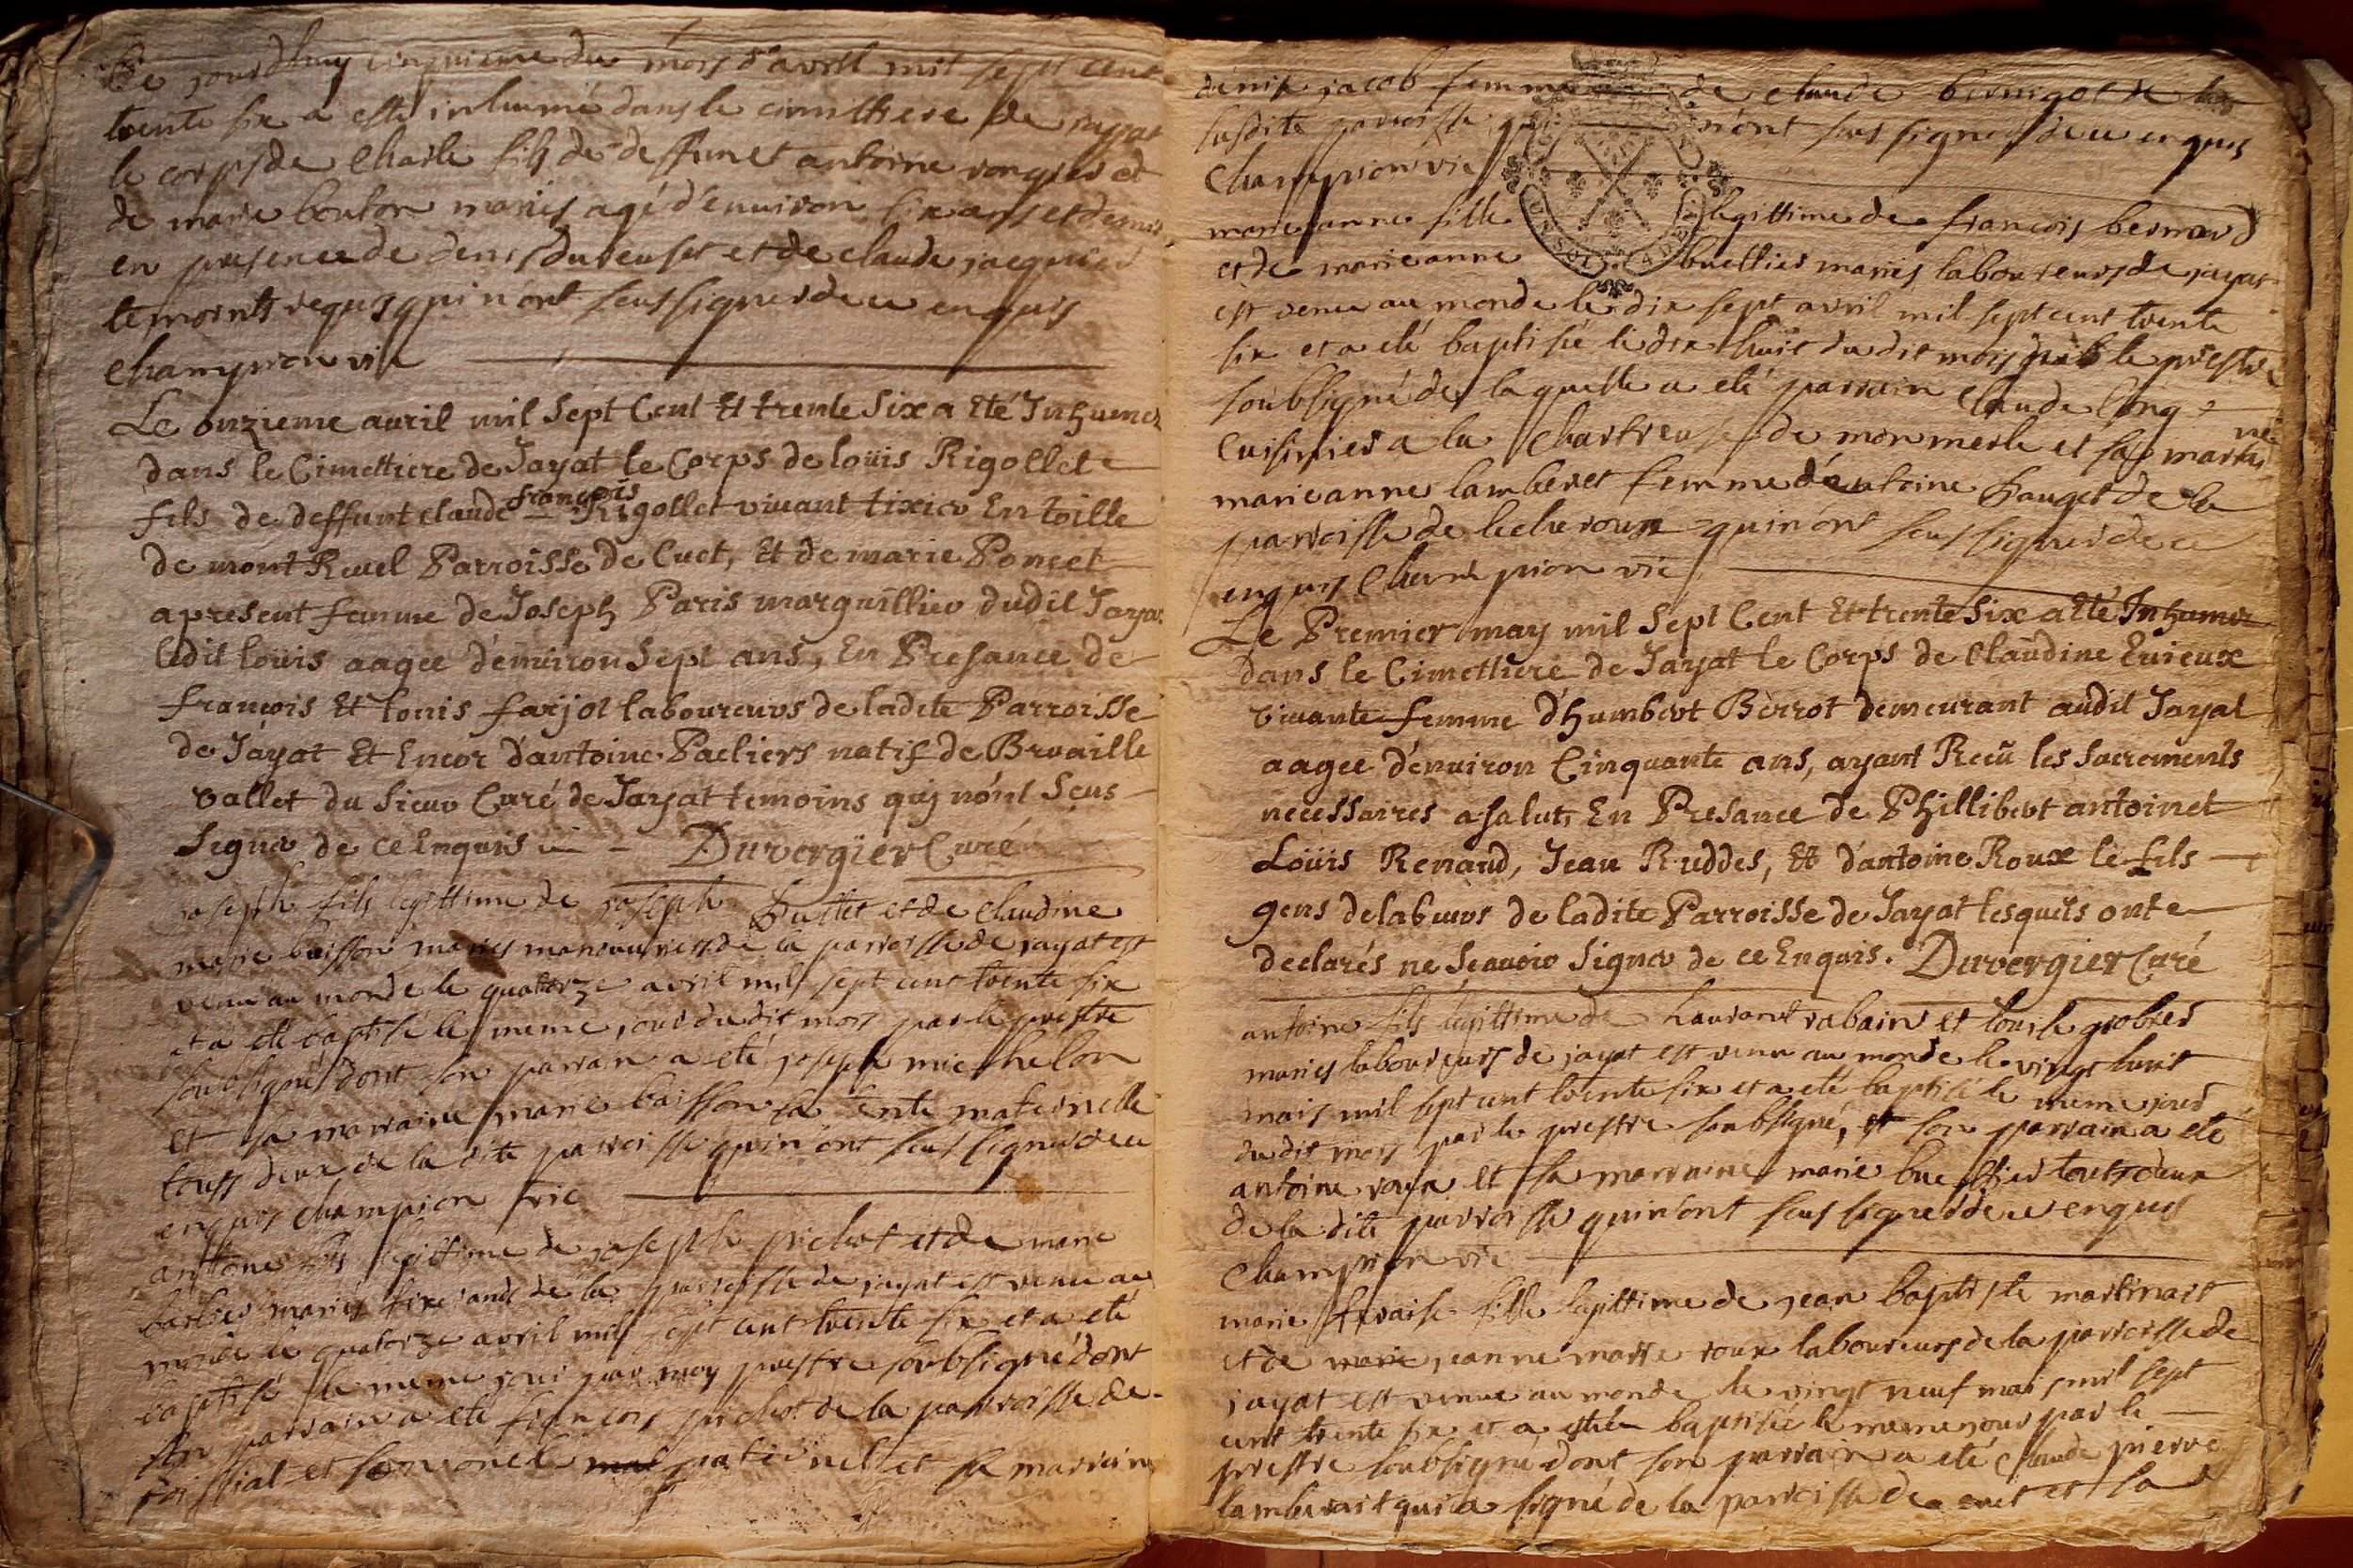 Ce jourdhuy cinquieme du mois d'avril mil sept cent
trente six a esté inhumé dans le cimittiere de jayat
le corps de Charle fils de deffunct antoine et
de marie bouton mariés agé d'environ six ans et demis
en presence de denis et de claude
temoints requis qui n'ont seus signer de ce enquis
Champion vic
Le onzieme auril mil Sept Cent Et trente Six a Eté Inhumer
dans le Cimettiere de Jayat le Corps de loüis Rigollet
fils de deffunt claude françois Rigollet viuant tixier En toille
de mont Reuel Parroisse de Cuet, Et de marie Poncet
apresent femme de Joseph Paris marguillier dudit Jayat
ledit loüis aagee d'enuiron Sept ans, En Presance de
françois Et louis farjot laboureurs de ladite Parroisse
de Jayat Et Encor d'antoine Pacliers natif de Bruaille
vallet du Sieur Curé de Jayat temoins qui n'ont Seus
Signer de ce Enquis Duvergier Curé
joseph fils legittime de joseph et de claudine
marie buisson mariés manouuriers de la parroisse de jayat est
venu au monde le quatorze avril mil sept cent trente six
et a eté baptisé le meme jour du dit mois par le prestre
soubsigné dont son parrain a eté joseph michelon
et sa marraine marie buisson sa tente maternelle
touss deux de la dite parroisse qui n'ont seus signer de ce
enquis champion vic
antoine fils legittime de joseph pichot et de marie
barbier mariés tixerands de la parroisse de jayat est venu au
monde le quatorze avril mil sept cent trente six et a eté
baptisé le meme jour par moy prestre soubsigné dont
son parrain a eté françois pichot de la parroisse de
foissiat et son oncle paternel et sa marraine
denise jacob femme de claude de la
susdite parroisse qui n'ont seus signer de ce enquis
Champion vic
marieanne fille legittime de françois bernard
et de marieanne buellier mariés laboureurs de jayat
est venue au monde le dix sept avril mil sept cent trente
six et a eté baptisée le dix huit du dit mois par le prestre
soubsigné de laquelle a eté parrain Claude
cuisinier a la Chartreuse de monmerle et sa marraine
marieanne lamberet femme d'antoine de la
parroisse de lecheroux qui n'ont seus signer de ce
enquis Champion vic
Le Premier may mil Sept Cent Et trente Six a Eté Inhumer
dans le Cimettiere de Jayat le Corps de Claudine Euieux
viuante femme d'humbert Berrot demeurant audit Jayat
aagee d'enuiron Cinquante ans, ayant Receü les Sacrements
necessaires a salut, En Presance de Phillibert antoinet
Loüis Renaud, Jean Ruddes, Et d'antoine Roux le fils
gens de labeurs de ladite Parroisse de Jayat lesquels ont
declarés ne Scauoir Signer de ce Enquis. Duvergier Curé
antoine fils legittime de laurant rabain et
mariés laboureurs de jayat est venu au monde le vingt huit
mais mil sept cent trente six et a eté baptisé le meme jour
du dit mois par le prestre soubsigné, et son parrain a eté
antoine roux et sa marraine marie buellier touts deux
de la dite parroisse qui n'ont seus signer de ce enquis
Champion vic
marie fille legittime de jean baptiste martinart
et de jeanne marie roux laboureurs de la parroisse de
jayat est venue au monde le vingt neuf mais mil sept
cent trente six et a baptisée le meme jour par le
prestre soubsigné dont son parrain a eté Claude pierre
qui a signé de la parroisse de cuet et sa